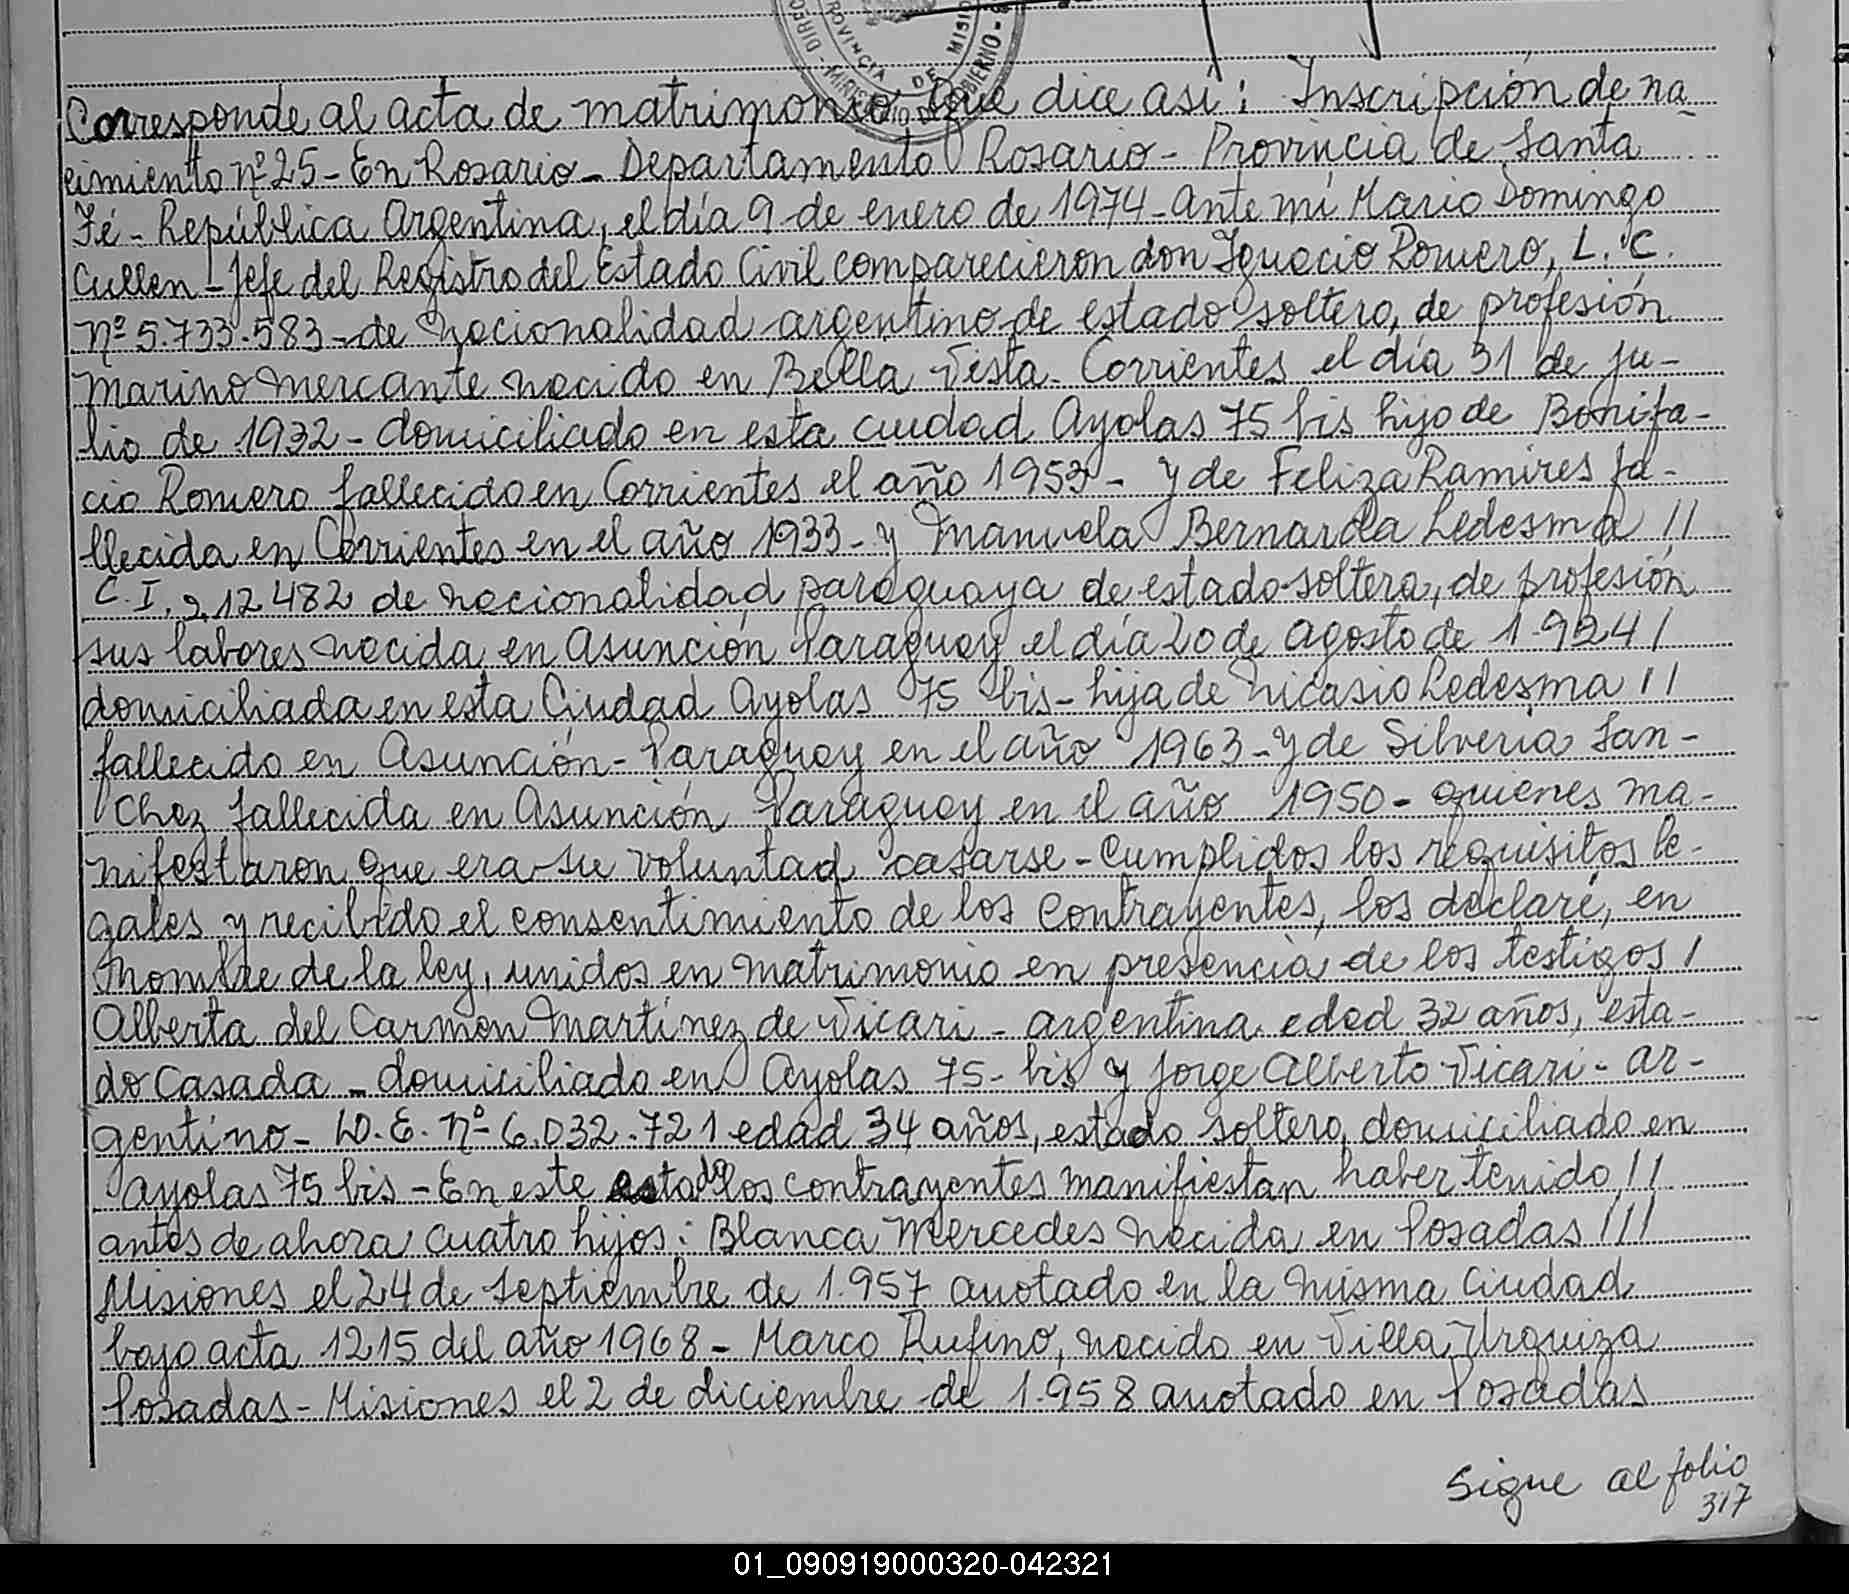 DIREC - MINISTERIO DE GOBIERNO -
PROVINCIA DE MISIO
Corresponde al acta de matrimonio que dice así: Inscripción de na_
cimiento nº 25 - En Rosario - Departamento Rosario - Provincia de Santa
Fé - República Argentina, el día 9 de enero de 1974 - ante mi Mario Domingo
Cullen - Jefe del Registro del Estado Civil comparecieron don Ignacio Romero, L. C.
nº 5.733.583 - de nacionalidad argentino de estado soltero, de profesión
marino mercante nacido en Bella Vista - Corrientes el día 31 de ju-
lio de 1932 - domiciliado en esta ciudad Ayolas 75 bis hijo de Bonifa-
cio Romero fallecido en Corrientes el año 1953 - y de Feliza Ramires fa-
llecida en Corrientes en el año 1933 - y Manuela Bernarda Ledesma //
C. I. 212482 de nacionalidad paraguaya de estado soltera, de profesión
sus labores nacida en Asunción Paraguay el día 20 de agosto de 1.924 /
domiciliada en esta Ciudad Ayolas 75 bis - hija de Nicasio Ledesma //
fallecido en Asunción - Paraguay en el año 1963 - y de Silveria San-
chez fallecida en Asunción Paraguay en el año 1950 - quienes ma-
nifestaron que era su voluntad casarse - Cumplidos los requisitos le-
gales y recibido el consentimiento de los contrayentes, los declaré, en
nombre de la ley, unidos en matrimonio en presencia de los testigos /
Alberta del Carmen Martínez de Vicari - argentina edad 32 años, esta-
do casada - domiciliado en Ayolas 75 - bis y Jorge Alberto Vicari - ar-
gentino - D. E. nº 6.032.721 edad 34 años, estado soltero, domiciliado en
Ayolas 75 bis - En este estado los contrayentes manifiestan haber tenido //
antes de ahora cuatro hijos: Blanca Mercedes nacida en Posadas ///
Misiones el 24 de septiembre de 1.957 anotado en la misma Ciudad
bajo acta 1215 del año 1968 - Marco Rufino, nacido en Villa Urquiza
Posadas - Misiones el 2 de diciembre de 1.958 anotado en Posadas
Sigue al folio
317
01_090919000320-042321